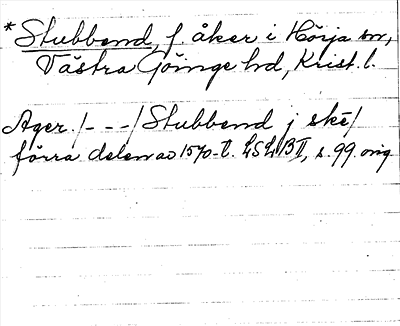 * Stubbend, f. åker i Hörja sn,
Västra Göinge hd, Krist. l.
Ager. /- - -/ Stubbend j ske/
förra delen av 1570-t. LSLB II, s. 99. orig.